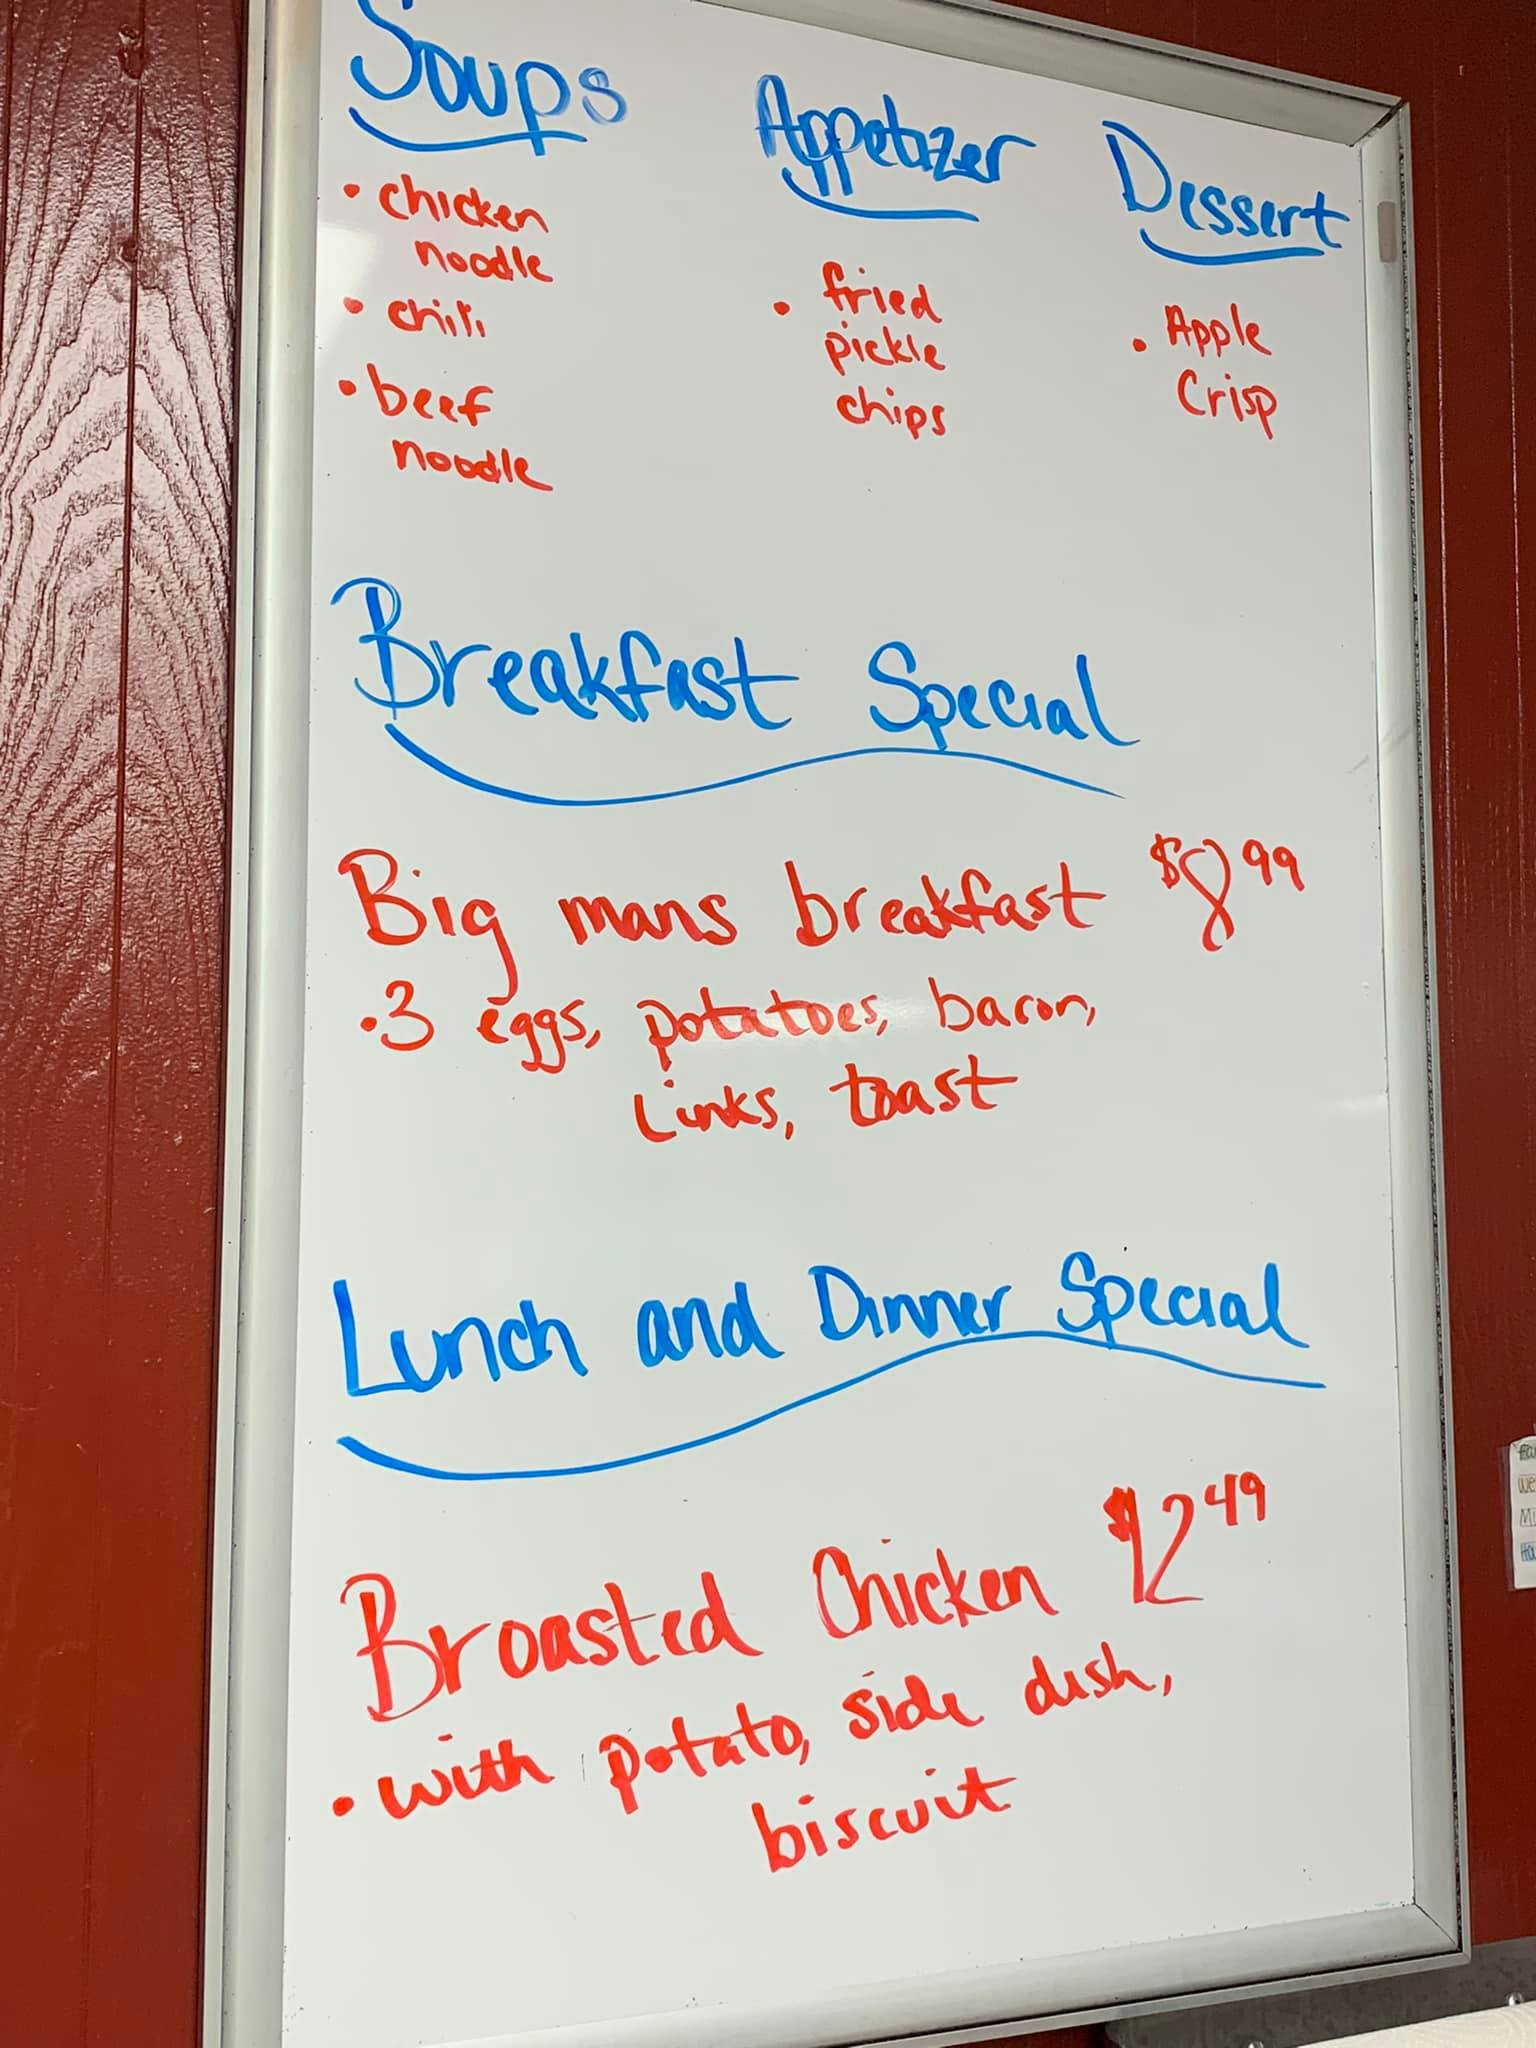 Soups
Appetizer
Dessert
• chicken
noodle
• chili
• beef
noodle
• fried
pickle
chips
• Apple
Crisp
Breakfast Special
Big mans breakfast $8 99
• 3 eggs, potatoes, bacon,
Links, toast
Lunch and Dinner Special
Broasted Chicken $12 49
• with potato, side dish,
biscuit